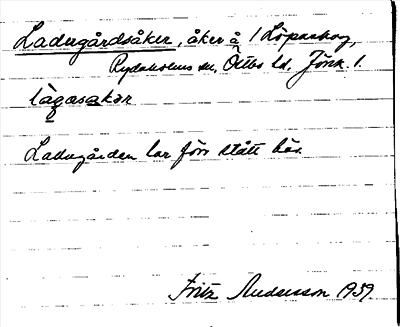 Ladugårdsåker, åker å 1 Löpaskog,
Rydaholms sn, Östbo hd. Jönk. l.
làgasakər
Ladugården lar förr stått här.
Fritz Andersson 1939